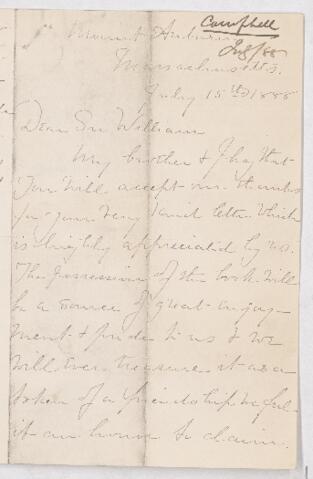 Campbell
July/88
Mount Auburn
Massachusetts.
July 15th 1888
Dear Sir William
My brother & I hope that
you will accept our thanks
for your very kind letter which
is highly appreciated by us.
The possession of the book will
be a source of great enjoy-
ment & pride to us & we
will ever treasure it as a
token of a friendship we feel
it an honor to claim.